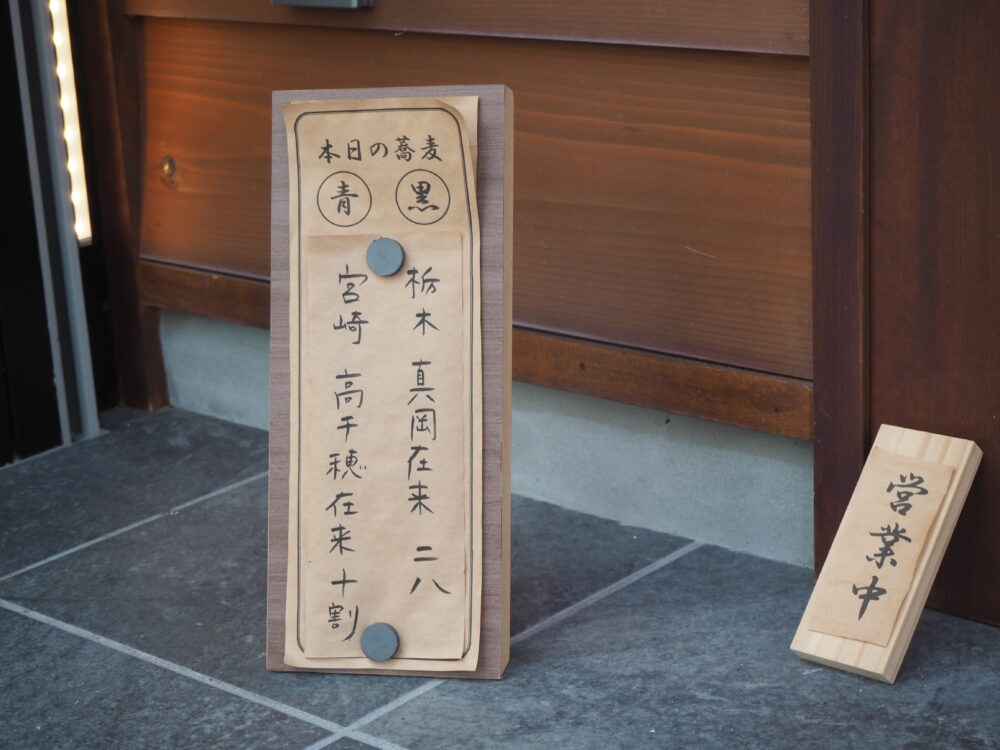 本日の蕎麦
黒
栃木 真岡在来 二八
青
宮崎 高千穂在来 十割
営業中